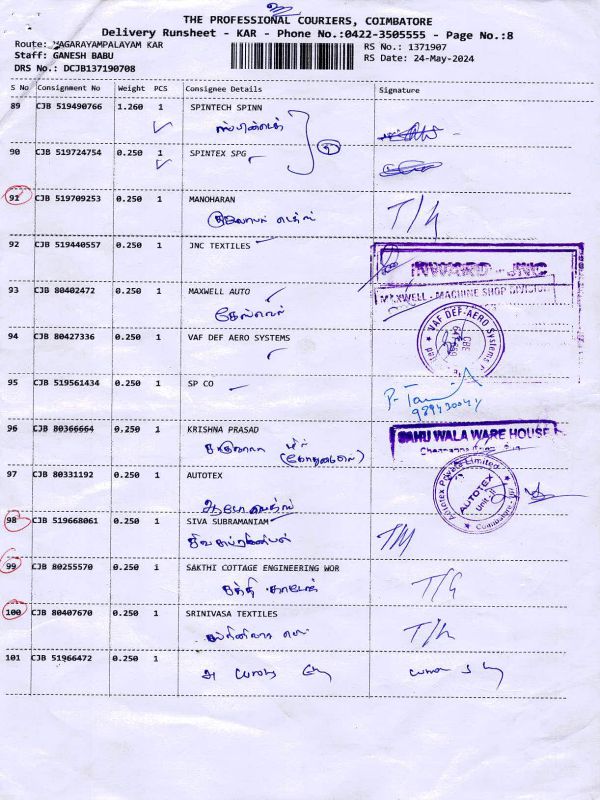 THE PROFESSIONAL COURIERS, COIMBATORE
Delivery Runsheet - KAR - Phone No.:0422-3505555 - Page No.:8
Route: NAGARAYAMPALAYAM KAR
RS No.: 1371907
Staff: GANESH BABU
RS Date: 24-May-2024
DRS No.: DCJB137190708
S No Consignment No Weight PCS Consignee Details Signature
89 CJB 519490766 1.260 1 SPINTECH SPINN
90 CJB 519724754 0.250 1 SPINTEX SPG
91 CJB 519709253 0.250 1 MANOHARAN
T/G
92 CJB 519440557 0.250 1 JNC TEXTILES
INWARD - JNC
93 CJB 80402472 0.250 1 MAXWELL AUTO
MAXWELL - MACHINE SHOP DIVISION
94 CJB 80427336 0.250 1 VAF DEF AERO SYSTEMS
VAF DEF-AERO Systems
CBE
95 CJB 519561434 0.250 1 SP CO
96 CJB 80366664 0.250 1 KRISHNA PRASAD
SAHU WALA WARE HOUSE
97 CJB 80331192 0.250 1 AUTOTEX
Autotex Private Limited
AUTOTEX
Unit II
Coimbatore
98 CJB 519668061 0.250 1 SIVA SUBRAMANIAM
99 CJB 80255570 0.250 1 SAKTHI COTTAGE ENGINEERING WOR
T/G
100 CJB 80407670 0.250 1 SRINIVASA TEXTILES
101 CJB 51966472 0.250 1